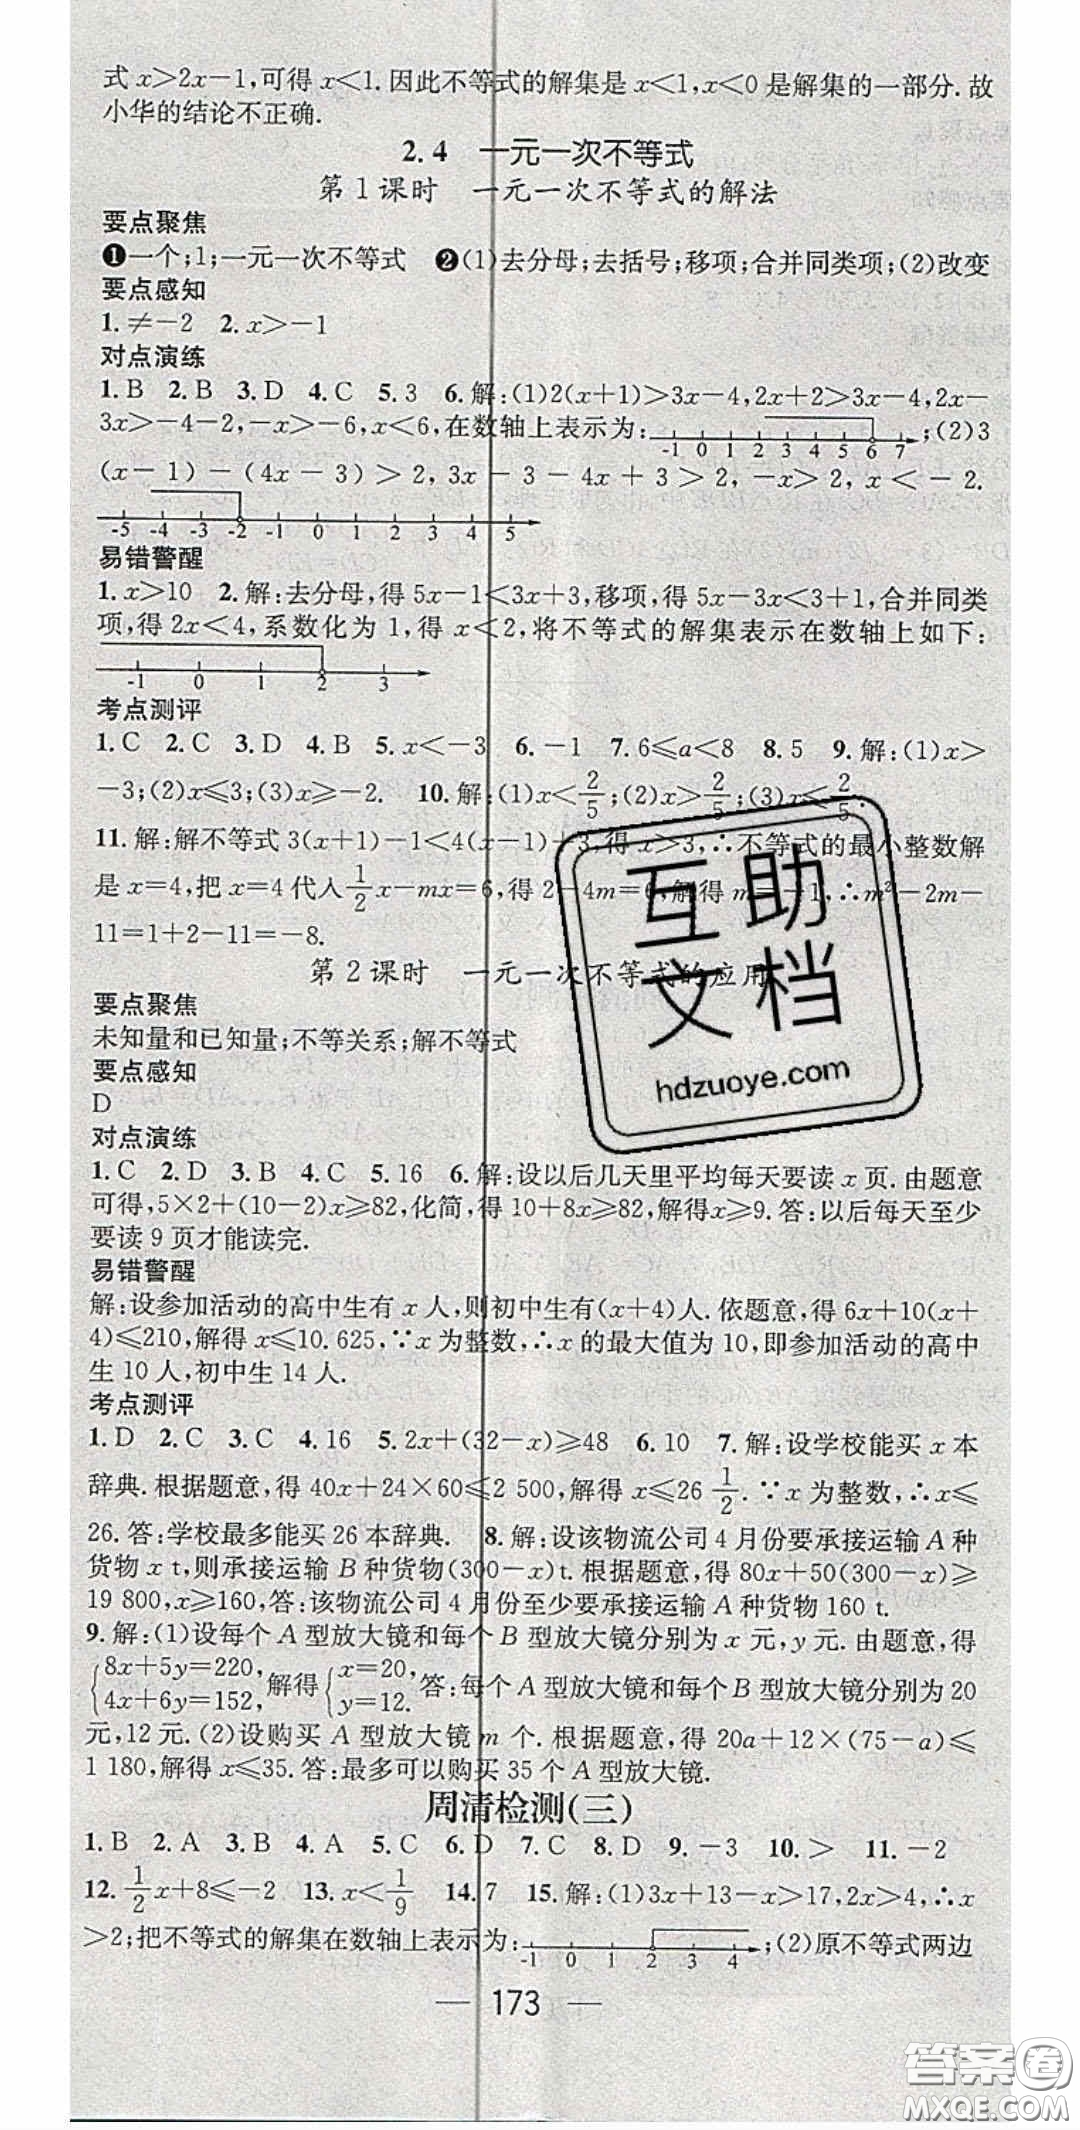 式 x>2x-1,可得 x<1. 因此不等式的解集是 x<1,x<0 是解集的一部分. 故
小华的结论不正确.
2.4 一元一次不等式
第 1 课时 一元一次不等式的解法
要点聚焦
❶一个;1;一元一次不等式 ❷(1)去分母;去括号;移项;合并同类项;(2)改变
要点感知
1. ≠-2 2. x>-1
对点演练
1. B 2. B 3. D 4. C 5. 3 6. 解:(1)2(x+1)>3x-4,2x+2>3x-4,2x-
3x>-4-2,-x>-6,x<6,在数轴上表示为: -1 0 1 2 3 4 5 6 7 ;(2)3
(x-1)-(4x-3)>2,3x-3-4x+3>2,-x>2,x<-2.
-5 -4 -3 -2 -1 0 1 2 3 4 5
易错警醒
1. x>10 2. 解:去分母,得 5x-1<3x+3,移项,得 5x-3x<3+1,合并同类
项,得 2x<4,系数化为 1,得 x<2,将不等式的解集表示在数轴上如下:
-1 0 1 2 3
考点测评
1. C 2. C 3. D 4. B 5. x<-3 6. -1 7. 6≤a<8 8. 5 9. 解:(1)x>
-3;(2)x≤3;(3)x≥-2. 10. 解:(1)x<2/5;(2)x>2/5;(3)x≤2/5.
11. 解:解不等式 3(x+1)-1<4(x-1)+3,得 x>3,∴不等式的最小整数解
是 x=4,把 x=4 代入 1/2 x-mx=6,得 2-4m=6,解得 m=-1,∴m²-2m-
11=1+2-11=-8.
第 2 课时 一元一次不等式的应用
要点聚焦
未知量和已知量;不等关系;解不等式
要点感知
D
对点演练
1. C 2. D 3. B 4. C 5. 16 6. 解:设以后几天里平均每天要读 x 页. 由题意
可得,5×2+(10-2)x≥82,化简,得 10+8x≥82,解得x≥9. 答:以后每天至少
要读 9 页才能读完.
易错警醒
解:设参加活动的高中生有 x 人,则初中生有(x+4)人. 依题意,得 6x+10(x+
4)≤210,解得 x≤10.625,∵x 为整数,∴x 的最大值为 10,即参加活动的高中
生 10 人,初中生 14 人.
考点测评
1. D 2. C 3. C 4. 16 5. 2x+(32-x)≥48 6. 10 7. 解:设学校能买 x 本
辞典. 根据题意,得 40x+24×60≤2 500,解得 x≤26 1/2. ∵x 为整数,∴x≤
26. 答:学校最多能买 26 本辞典. 8. 解:设该物流公司 4 月份要承接运输 A 种
货物 x t,则承接运输 B 种货物(300-x)t. 根据题意,得 80x+50(300-x)≥
19 800,x≥160,答:该物流公司 4 月份至少要承接运输 A 种货物 160 t.
9. 解:(1)设每个 A 型放大镜和每个 B 型放大镜分别为 x 元,y 元. 由题意,得
{8x+5y=220, 4x+6y=152,解得{x=20, y=12. 答:每个 A 型放大镜和每个 B 型放大镜分别为 20
元,12 元. (2)设购买 A 型放大镜 m 个. 根据题意,得 20a+12×(75-a)≤
1 180,解得 x≤35. 答:最多可以购买 35 个 A 型放大镜.
周清检测(三)
1. B 2. A 3. B 4. A 5. C 6. D 7. C 8. D 9. -3 10. > 11. -2
12. 1/2 x+8≤-2 13. x<1/9 14. 7 15. 解:(1)3x+13-x>17,2x>4,∴x
>2;把不等式的解集在数轴上表示为: -1 0 1 2 3 4 ;(2)原不等式两边
— 173 —
互助
文档
hdzuoye.com
答案卷
MXQE.COM